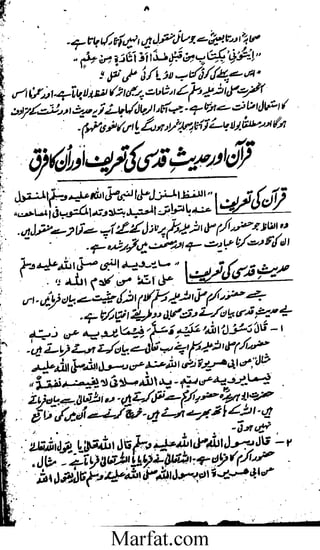 ۸
صحابہؓ اور تابعینؒ سے جو مسائل منقول ہیں انہیں آثار کہا جاتا ہے۔
اِیْتُوْنِیْ بِکِتَابٍ مِنْ قَبْلِ ھٰذَا اَوْ اَثَارَۃٍ مِنْ عِلْمٍ۔
" اس سے پہلے کی کوئی کتاب لاؤ یا کوئی علمی نقل "
آنحضرت صلی اللہ علیہ وسلم کے ارشادات پر بھی اثر کا لفظ بولا جاتا ہے، اور عموماً اس
کا استعمال اضافت سے ہوتا ہے۔ جب آثار الرسول کہا جائے تو یہ حدیث اور سُنت کے مترادف
ہوگا اور مطلقاً بولا جائے تو آثارِ صحابہ مراد ہوں گے یا اس کا لغوی مفہوم۔
قرآن اور حدیثِ قدسی کی تعریف اور اُن کا فرق
قرآن کی تعریف
" اللفظ المنزل علی النبی صلی اللہ علیہ وسلم المنقول
عنہ بالتواتر المتعبد بتلاوتہ المکتوب فی المصاحف"
وہ الفاظ جو حضور اکرم صلی اللہ علیہ وسلم پر نازل کئے گئے آپ سے تواتر سے منقول ہیں۔
ان کی تلاوت کرنا عبادت ہے اور وہ مصحف میں تحریر شدہ ہے۔
حدیثِ قدسی کی تعریف
" مایرویہ النبی صلی اللہ علیہ وسلم
علی انہ من کلام اللہ "
جسے حضور اکرم صلی اللہ علیہ وسلم کلام اللہ کی حیثیت سے بیان فرمائیں۔ اس
لیے حدیث قدسی بیان کرتے وقت صحابی دو طریقے اختیار کرتا ہے۔
۱ - قَالَ رَسُوْلُ اللہِ صَلَّی اللہُ عَلَیْہِ وَسَلَّمَ فِیْمَا یَرْوِیْہِ عَنْ رَبِّہٖ
حضور اکرم صلی اللہ علیہ وسلم اپنے رب تعالیٰ سے بیان کرتے ہوئے فرماتے ہیں۔
مثال: عن ابی ھریرۃ رضی اللہ عنہ عن رسول اللہ صلی اللہ علیہ
فیما یرویہ عن ربہ۔ ید اللہ ملأی لا یغیضھا نفقۃ"
حضرت ابوہریرہؓ حضور اکرمؐ سے نقل کرتے ہیں۔ وہ اللہ تعالیٰ سے بیان کرتے ہوئے فرماتے
ہیں۔ اللہ کے ہاتھ بھرے ہوئے ہیں۔ خرچ کرنے سے اُن میں کمی واقع
نہیں ہوتی۔
۲ - قال رسول اللہ صلی اللہ علیہ وسلم قال اللہ تعالیٰ یا یقول اللہ تعالیٰ
حضور اکرم کا فرمان ہے: اللہ تعالیٰ نے فرمایا یا اللہ تعالیٰ فرماتا ہے۔ مثال۔
عن ابی ھریرۃ ان رسول اللہ صلی اللہ علیہ وسلم قال یقول اللہ
Marfat.com